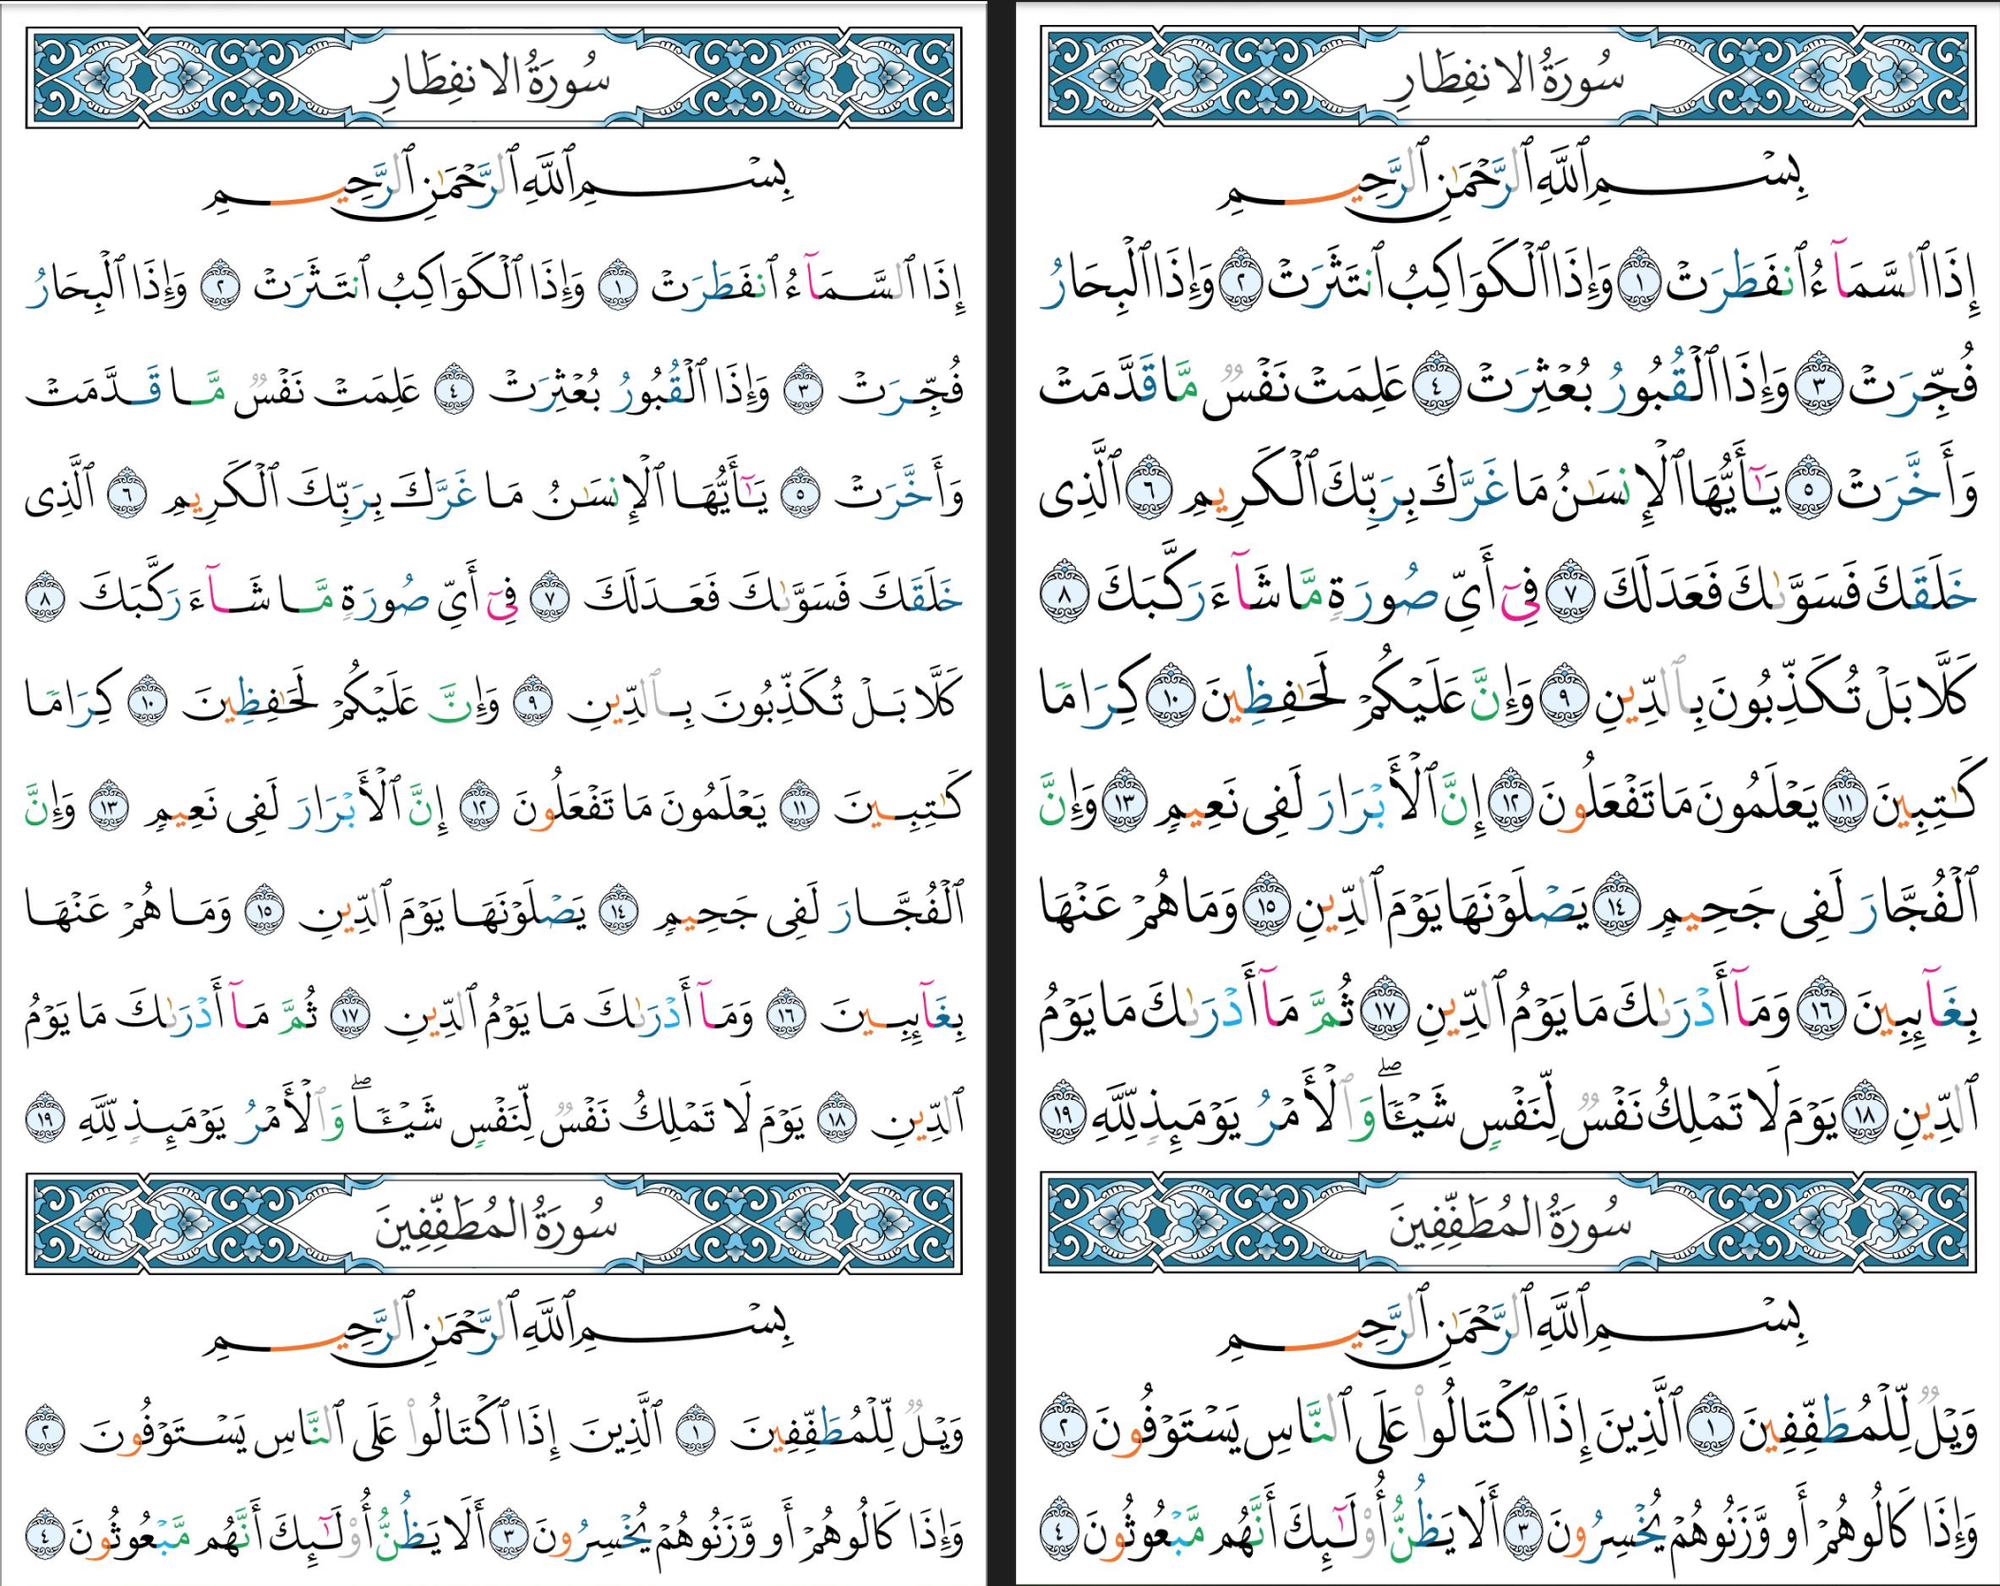 سُورَةُ الانفِطَارِ
بِسْمِ ٱللَّهِ ٱلرَّحْمَٰنِ ٱلرَّحِيمِ
إِذَا ٱلسَّمَآءُ ٱنفَطَرَتْ ١ وَإِذَا ٱلْكَوَاكِبُ ٱنتَثَرَتْ ٢ وَإِذَا ٱلْبِحَارُ
فُجِّرَتْ ٣ وَإِذَا ٱلْقُبُورُ بُعْثِرَتْ ٤ عَلِمَتْ نَفْسٌ مَّا قَدَّمَتْ
وَأَخَّرَتْ ٥ يَٰٓأَيُّهَا ٱلْإِنسَٰنُ مَا غَرَّكَ بِرَبِّكَ ٱلْكَرِيمِ ٦ ٱلَّذِى
خَلَقَكَ فَسَوَّىٰكَ فَعَدَلَكَ ٧ فِىٓ أَىِّ صُورَةٍ مَّا شَآءَ رَكَّبَكَ ٨
كَلَّا بَلْ تُكَذِّبُونَ بِٱلدِّينِ ٩ وَإِنَّ عَلَيْكُمْ لَحَٰفِظِينَ ١٠ كِرَامًا
كَٰتِبِينَ ١١ يَعْلَمُونَ مَا تَفْعَلُونَ ١٢ إِنَّ ٱلْأَبْرَارَ لَفِى نَعِيمٍ ١٣ وَإِنَّ
ٱلْفُجَّارَ لَفِى جَحِيمٍ ١٤ يَصْلَوْنَهَا يَوْمَ ٱلدِّينِ ١٥ وَمَا هُمْ عَنْهَا
بِغَآئِبِينَ ١٦ وَمَآ أَدْرَىٰكَ مَا يَوْمُ ٱلدِّينِ ١٧ ثُمَّ مَآ أَدْرَىٰكَ مَا يَوْمُ
ٱلدِّينِ ١٨ يَوْمَ لَا تَمْلِكُ نَفْسٌ لِّنَفْسٍ شَيْـًٔا ۖ وَٱلْأَمْرُ يَوْمَئِذٍ لِّلَّهِ ١٩
سُورَةُ المُطَفِّفِينَ
بِسْمِ ٱللَّهِ ٱلرَّحْمَٰنِ ٱلرَّحِيمِ
وَيْلٌ لِّلْمُطَفِّفِينَ ١ ٱلَّذِينَ إِذَا ٱكْتَالُوا۟ عَلَى ٱلنَّاسِ يَسْتَوْفُونَ ٢
وَإِذَا كَالُوهُمْ أَو وَّزَنُوهُمْ يُخْسِرُونَ ٣ أَلَا يَظُنُّ أُو۟لَٰٓئِكَ أَنَّهُم مَّبْعُوثُونَ ٤
سُورَةُ الانفِطَارِ
بِسْمِ ٱللَّهِ ٱلرَّحْمَٰنِ ٱلرَّحِيمِ
إِذَا ٱلسَّمَآءُ ٱنفَطَرَتْ ١ وَإِذَا ٱلْكَوَاكِبُ ٱنتَثَرَتْ ٢ وَإِذَا ٱلْبِحَارُ
فُجِّرَتْ ٣ وَإِذَا ٱلْقُبُورُ بُعْثِرَتْ ٤ عَلِمَتْ نَفْسٌ مَّا قَدَّمَتْ
وَأَخَّرَتْ ٥ يَٰٓأَيُّهَا ٱلْإِنسَٰنُ مَا غَرَّكَ بِرَبِّكَ ٱلْكَرِيمِ ٦ ٱلَّذِى
خَلَقَكَ فَسَوَّىٰكَ فَعَدَلَكَ ٧ فِىٓ أَىِّ صُورَةٍ مَّا شَآءَ رَكَّبَكَ ٨
كَلَّا بَلْ تُكَذِّبُونَ بِٱلدِّينِ ٩ وَإِنَّ عَلَيْكُمْ لَحَٰفِظِينَ ١٠ كِرَامًا
كَٰتِبِينَ ١١ يَعْلَمُونَ مَا تَفْعَلُونَ ١٢ إِنَّ ٱلْأَبْرَارَ لَفِى نَعِيمٍ ١٣ وَإِنَّ
ٱلْفُجَّارَ لَفِى جَحِيمٍ ١٤ يَصْلَوْنَهَا يَوْمَ ٱلدِّينِ ١٥ وَمَا هُمْ عَنْهَا
بِغَآئِبِينَ ١٦ وَمَآ أَدْرَىٰكَ مَا يَوْمُ ٱلدِّينِ ١٧ ثُمَّ مَآ أَدْرَىٰكَ مَا يَوْمُ
ٱلدِّينِ ١٨ يَوْمَ لَا تَمْلِكُ نَفْسٌ لِّنَفْسٍ شَيْـًٔا ۖ وَٱلْأَمْرُ يَوْمَئِذٍ لِّلَّهِ ١٩
سُورَةُ المُطَفِّفِينَ
بِسْمِ ٱللَّهِ ٱلرَّحْمَٰنِ ٱلرَّحِيمِ
وَيْلٌ لِّلْمُطَفِّفِينَ ١ ٱلَّذِينَ إِذَا ٱكْتَالُوا۟ عَلَى ٱلنَّاسِ يَسْتَوْفُونَ ٢
وَإِذَا كَالُوهُمْ أَو وَّزَنُوهُمْ يُخْسِرُونَ ٣ أَلَا يَظُنُّ أُو۟لَٰٓئِكَ أَنَّهُم مَّبْعُوثُونَ ٤